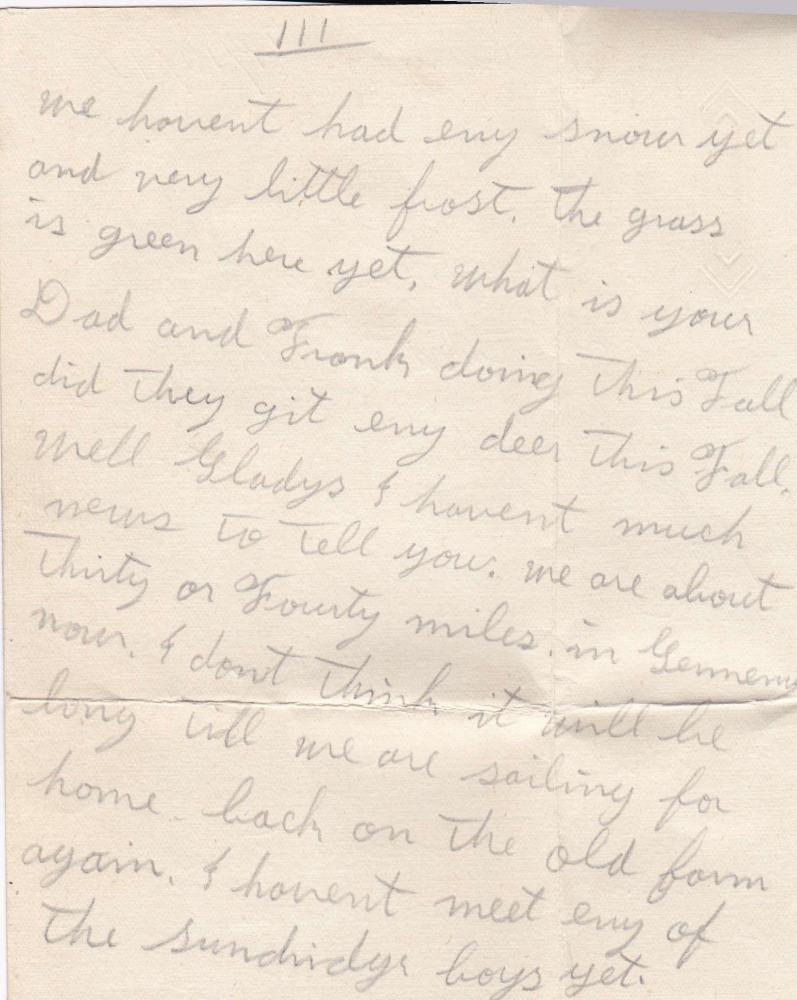 III
we havent had eny snow yet
and very little frost. the grass
is green here yet. what is your
Dad and Frank doing this Fall
did they git eny deer this Fall.
well Gladys I havent much
news to tell you. we are about
Thirty or Fourty miles. in Gennemy
now. I dont think it will be
long till we are sailing for
home. back on the old farm
again. I havent meet eny of
the sundridge boys yet.